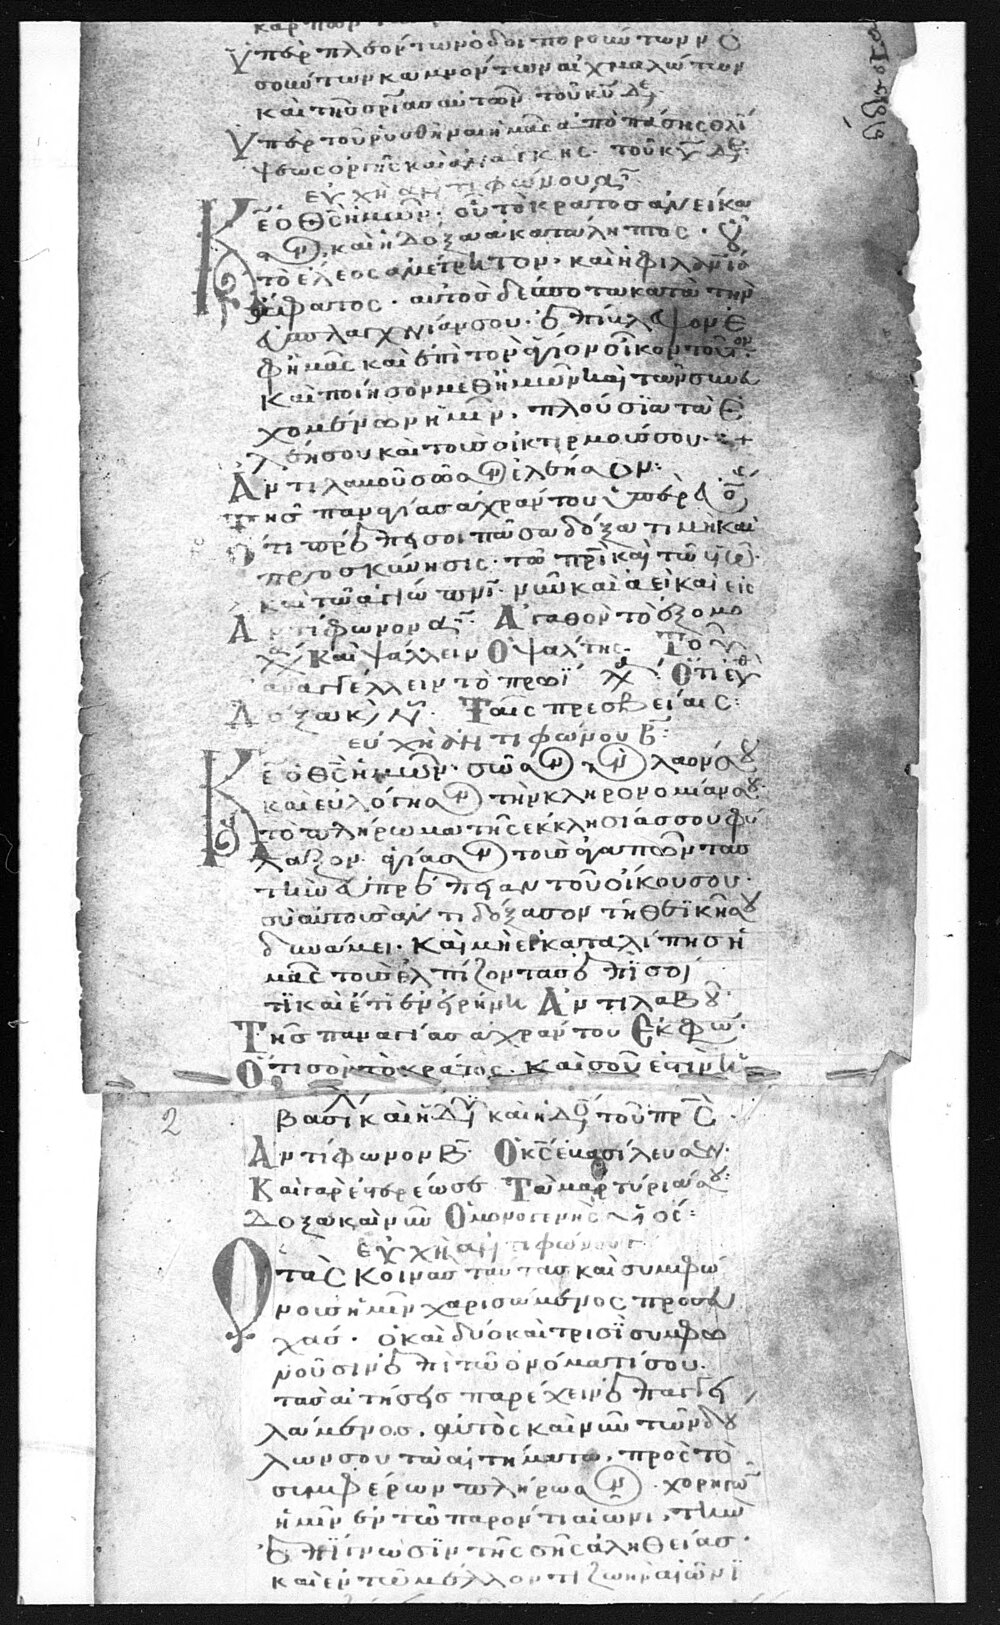 Ὑπὲρ πλεόντων ὁδοιπορούντων ν
σούντων καμνόντων αἰχμαλώτων
καὶ τῆς σρίας αὐτῶν τοῦ κῦ δε
Ὑπὲρ τοῦ ῥυσθῆναι ἡμᾶς ἀπὸ πάσης θλί
ψεως ὀργῆς καὶ ἀνάγκης. τοῦ κῦ δε:
εὐχὴ ἀντιφώνου α
Κε ὁ θς ἡμῶν. οὗ τὸ κράτος ἀνείκα
καὶ ἡ δόξα ἀκατάληπτος. οὗ
τὸ ἔλεος ἀμέτρητον. καὶ ἡ φιλανιό
ἄφατος. αὐτὸς δέσποτα κατὰ τὴν
εὐσπλαγχνίαν σου. ἐπίβλεψον ἐ
φ ἡμᾶς καὶ ἐπὶ τὸν ἅγιον οἶκον τοῦτον
καὶ ποίησον μεθ ἡμῶν καὶ τῶν συνευ
χομένων ἡμῖν. πλούσια τὰ ἐ
λέη σου καὶ τοὺς οἰκτιρμούς σου. +
Ἀντιλαβοῦ σῶσον ἐλέησον:
Τῆς παναγίας ἀχράντου ὑπερ
Ὅτι πρέπει σοι πᾶσα δόξα τιμὴ καὶ
προσκύνησις. τῶ πρὶ καὶ τῶ υἱῶ.
καὶ τῶ ἁγίω πνι. νῦν καὶ ἀεὶ καὶ εἰς
Ἀντίφωνον α. Ἀγαθὸν τὸ ἐξομο
Καὶ ψάλλειν Ὁ ψάλτης. Τοῦ
ἀναγγέλλειν τὸ πρωΐ Ὅτι εὐθ
Δόξα κ ν. Ταῖς πρεσβείαις:
εὐχὴ ἀντιφώνου β:
Κε ὁ θς ἡμῶν. σῶσον τὸν λαόν σου
καὶ εὐλόγησον τὴν κληρονομίαν σου:
τὸ πλήρωμα τῆς ἐκκλησίας σου φύ
λαξον. ἁγίασον τοὺς ἀγαπῶντας
τὴν εὐπρέπειαν τοῦ οἴκου σου.
σὺ αὐτοὺς ἀντιδόξασον τῆ θεϊκῆ σου
δυνάμει. Καὶ μὴ ἐγκαταλίπης ἡ
μᾶς τοὺς ἐλπίζοντας ἐπὶ σοί
τι καὶ ἔτι ἐν εἰρήνη Ἀντιλαβοῦ.
Τῆς παναγίας ἀχράντου Ἐκφώ.
Ὅτι σὸν τὸ κράτος. Καὶ σοῦ ἐστιν ἡ
βασι καὶ ἡ δυ καὶ ἡ δο τοῦ πρς.
Ἀντίφωνον β Ὁ κς ἐβασίλευσεν.
Καὶ γὰρ ἐστερέωσε Τὰ μαρτύριά σου:
Δόξα καὶ νῦν Ὁ μονογενὴς υἱός:
εὐχὴ ἀντιφώνου
Ὁ τὰς κοινὰς ταύτας καὶ συμφώ
νους ἡμῖν χαρισάμενος προσευ
χάς. ὁ καὶ δύο καὶ τρισὶ συμφω
νοῦσιν ἐπὶ τῶ ὀνόματί σου.
τὰς αἰτήσεις παρέχειν ἐπαγγει
λάμενος. αὐτὸς καὶ νῦν τῶν δού
λων σου τὰ αἰτήματα. πρὸς τὸ
συμφέρων πλήρωσον. χορηγῶν
ἡμῖν ἐν τῶ παρόντι αἰῶνι, τὴν
ἐπίγνωσιν τῆς σῆς ἀληθείας.
καὶ ἐν τῶ μέλλοντι ζωὴν αἰώνι
2